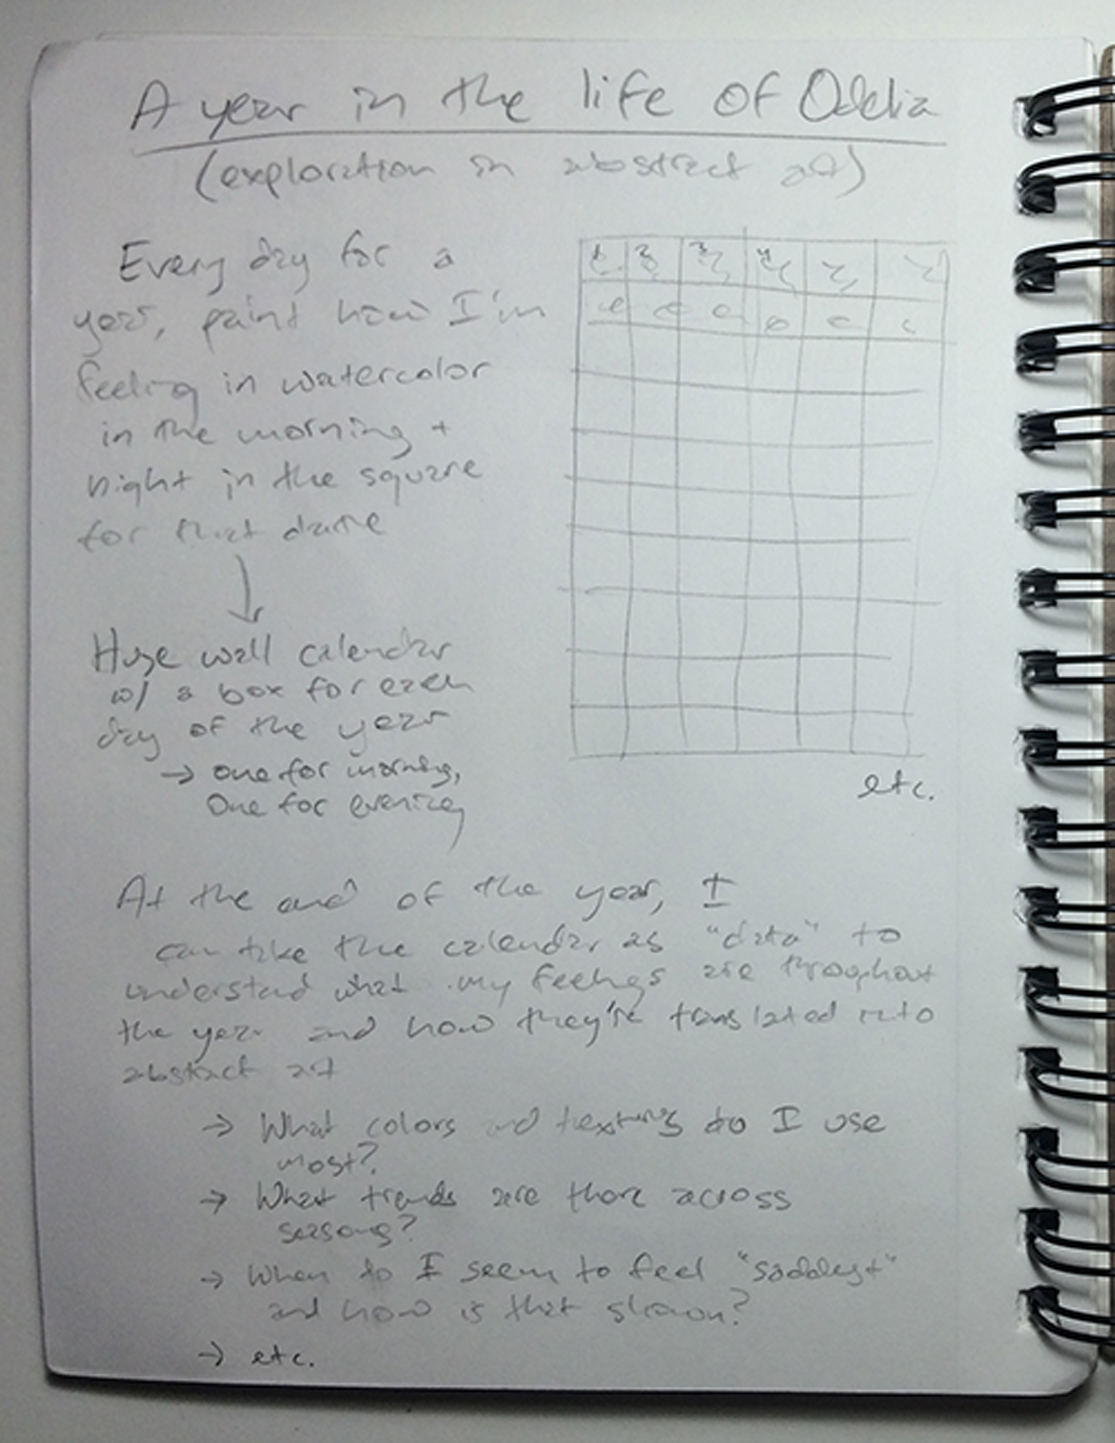 A year in the life of Oddia
(exploration in abstract art)
Every day for a
year, paint how I'm
feeling in watercolor
in the morning +
night in the square
for that
Huge wall calendar
w/ a box for each
day of the year
→ one for morning,
One for evening
etc.
At the end of the year, I
can take the calendar as "data" to
understand what my feelings are throughout
the year and how they're translated into
abstract art
→ What colors and textures do I use
most?
→ What trends are there across
seasons?
→ When do I seem to feel "saddest"
and how is that shown?
→ etc.